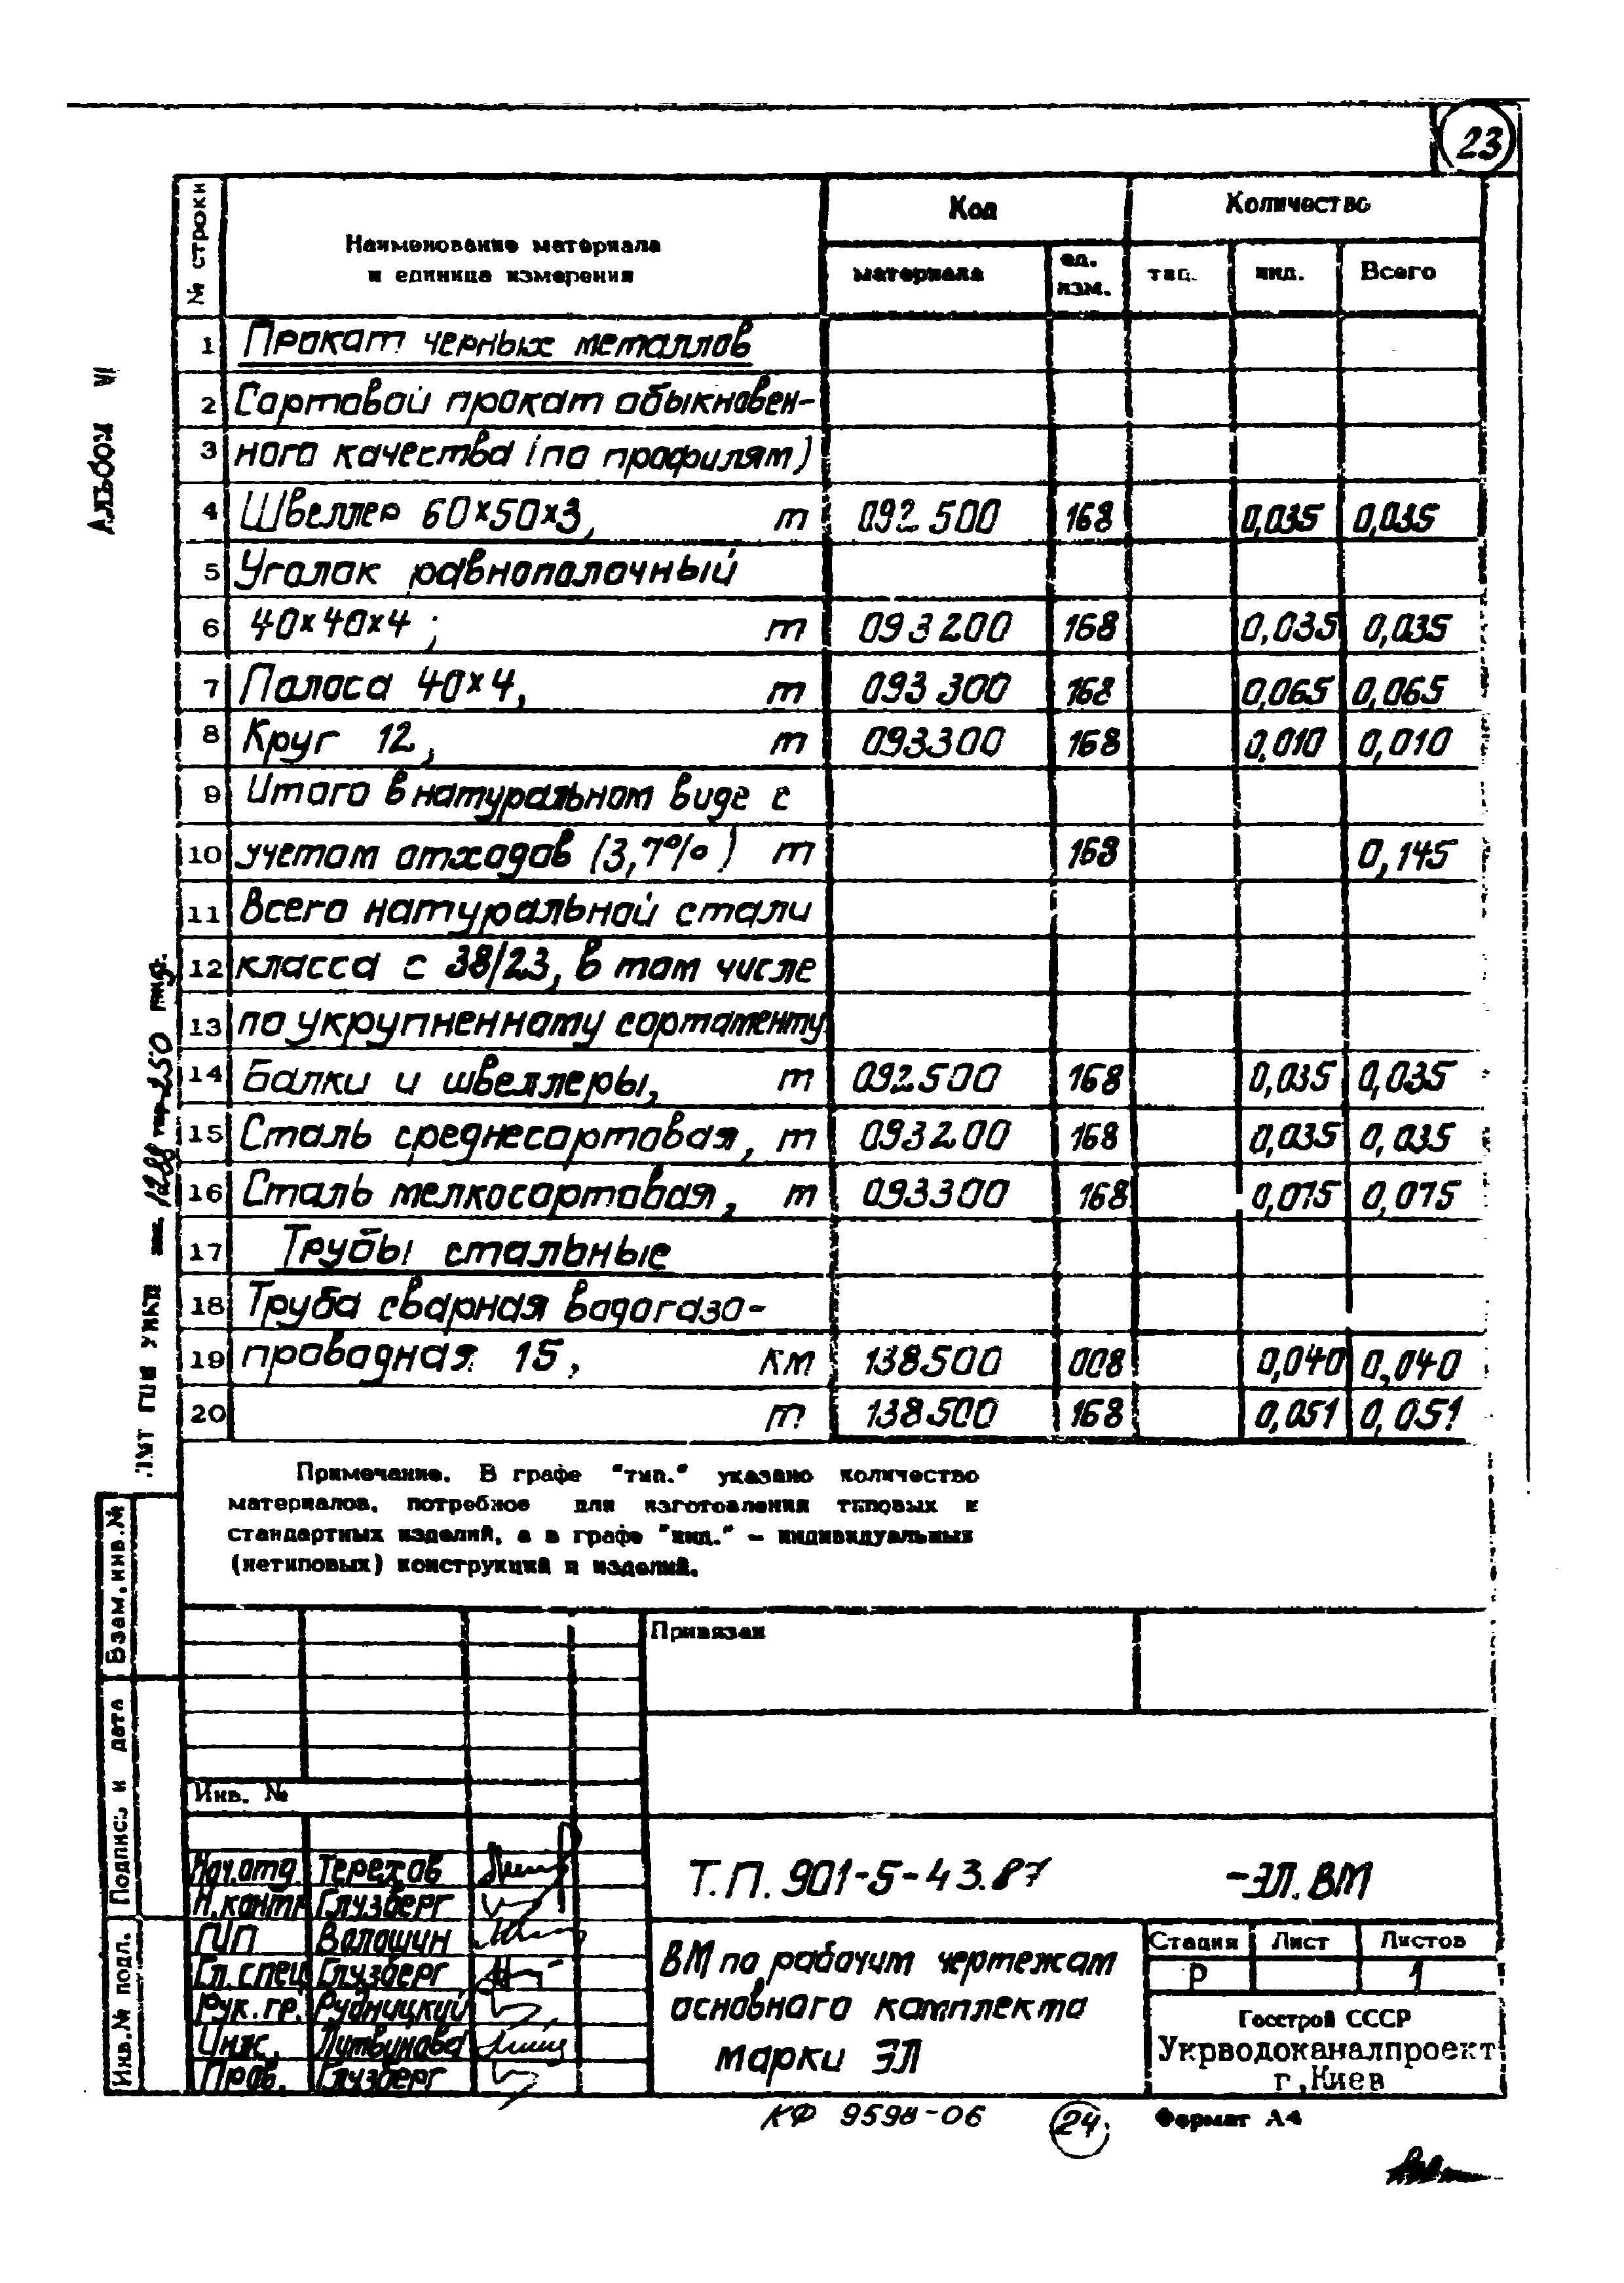 23
№ строки
Наименование материала
и единица измерения
Код
Количество
материала
ед.
изм.
тип.
инд.
Всего
1 Прокат черных металлов
2 Сортовой прокат обыкновен-
3 ного качества (по профилям)
4 Швеллер 60×50×3, т 092500 168 0,035 0,035
5 Уголок равнополочный
6 40×40×4; т 093200 168 0,035 0,035
7 Полоса 40×4, т 093300 168 0,065 0,065
8 Круг 12, т 093300 168 0,010 0,010
9 Итого в натуральном виде с
10 учетом отходов (3,7%) т 168 0,145
11 Всего натуральной стали
12 класса С 38/23, в том числе
13 по укрупненному сортаменту
14 Балки и швеллеры, т 092500 168 0,035 0,035
15 Сталь среднесортовая, т 093200 168 0,035 0,035
16 Сталь мелкосортовая, т 093300 168 0,075 0,075
17 Трубы стальные
18 Труба сварная водогазо-
19 проводная 15, км 138500 008 0,040 0,040
20 т 138500 168 0,051 0,051
Примечание. В графе "тип." указано количество
материалов, потребное для изготовления типовых и
стандартных изделий, а в графе "инд." – индивидуальных
(нетиповых) конструкций и изделий.
Альбом VI
зак. 1288 тир 250 инд.
Взам.инв.№
Подпись и дата
Инв.№ подл.
Привязан
Инв. №
Нач.отд. Терехов
Н.контр Глузберг
ГИП Волошин
Гл.спец Глузберг
Рук.гр. Рудницкий
Инж. Литвинова
Пров. Глузберг
Т.П. 901-5-43.87 -ЭЛ.ВМ
ВМ по рабочим чертежам
основного комплекта
марки ЭЛ
Стадия Лист Листов
Р 1
Госстрой СССР
Укрводоканалпроект
г.Киев
КФ 9598-06 24. Формат А4